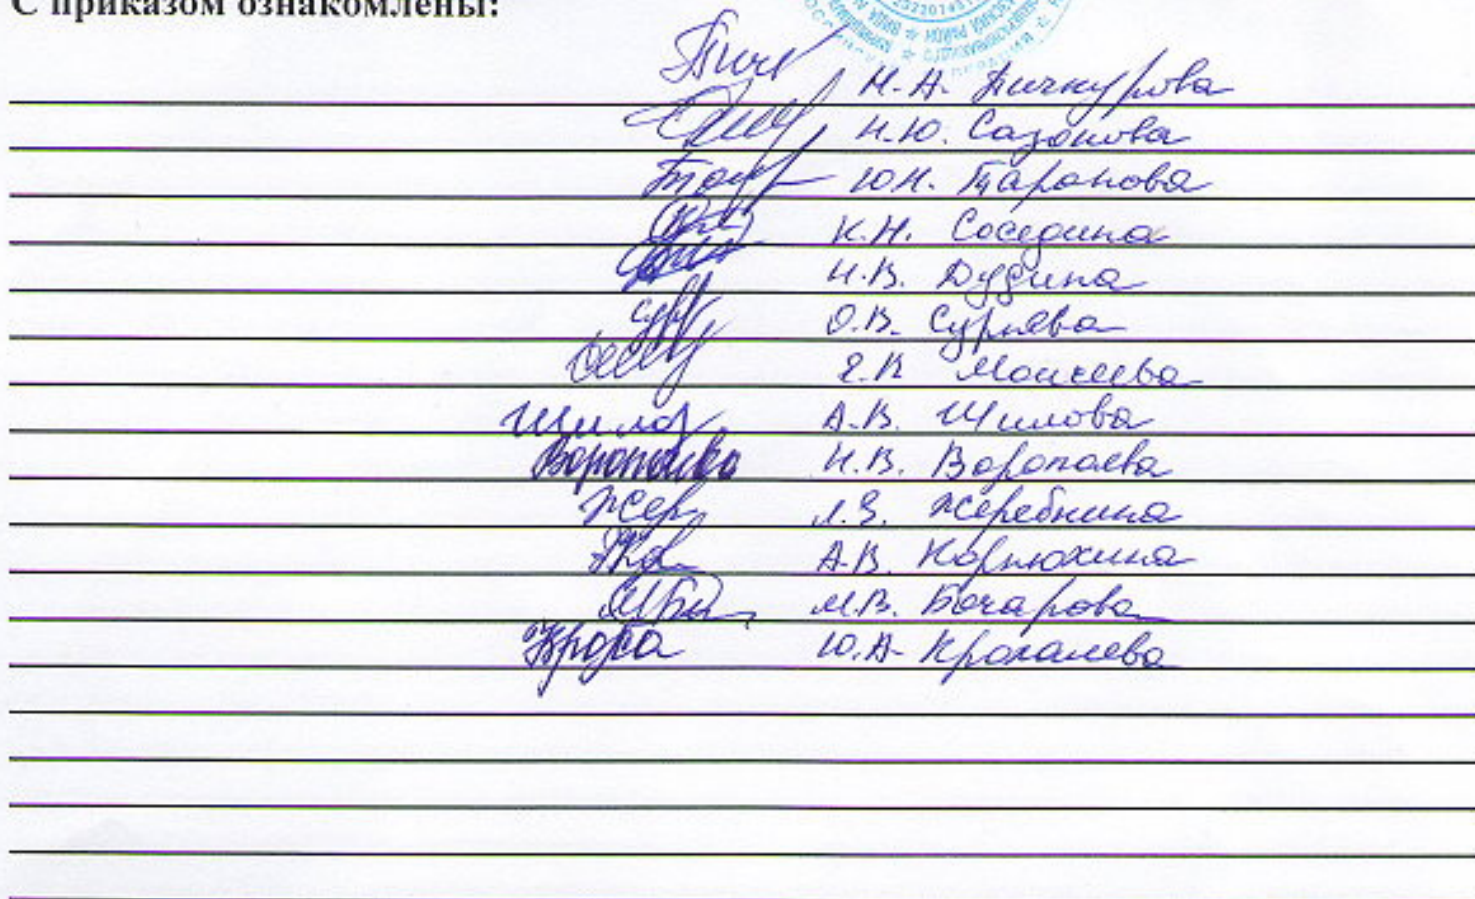 С приказом ознакомлены:
Пич Н.А. Пичкурова
Н.Ю. Сазонова
Ю.Н. Таранова
К.Н. Соседина
Н.В. Дудина
О.В. Сурнева
Е.В Моисеева
Шилов А.В. Шилова
Воропаева Н.В. Воропаева
Жер Л.З. Жеребнина
А.В. Корнюхина
МБ М.В. Бочарова
Ю.А. Крогалева